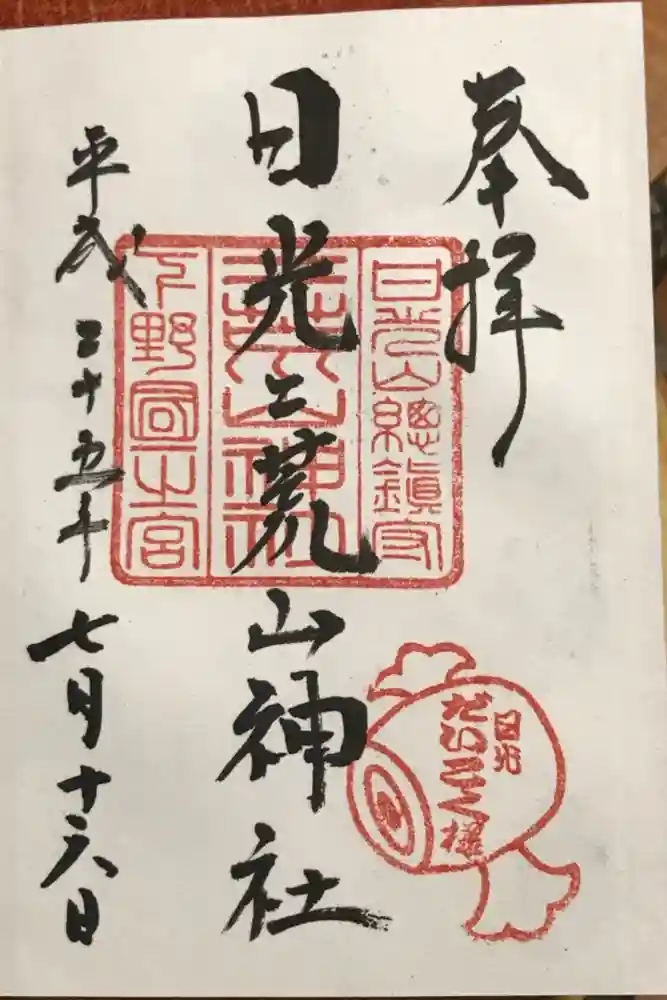 奉拝
日光二荒山神社
平成二十五年七月十六日
日光山總鎮守
二荒山神社
下野國一之宮
日光
だいこく様